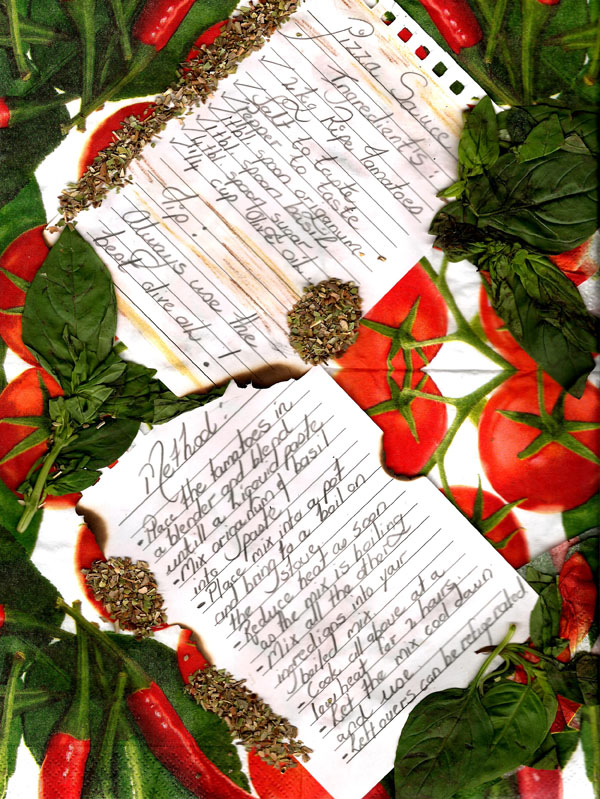 Pizza Sauce
Ingredients:
✓ 2kg Ripe Tomatoes
✓ Salt to taste
✓ Pepper to taste
✓ 1tbl spoon origanum
✓ 1tbl spoon basil
✓ 1tbl spoon sugar
✓ 1/4 cup Olive oil
Tip:
Always use the
best olive oil !
Method:
- Place the tomatoes in
a blender and blend
untill a liquid paste
- Mix origanum & basil
into paste
- Place mix into a pot
and bring to a boil on
stove
- Reduce heat as soon
as the mix is boiling
- Mix all the other
ingredients into your
boiled mix
- Cook all above at a
low heat for 2 hours
- Let the mix cool down
and use
- Leftovers can be refrigerated